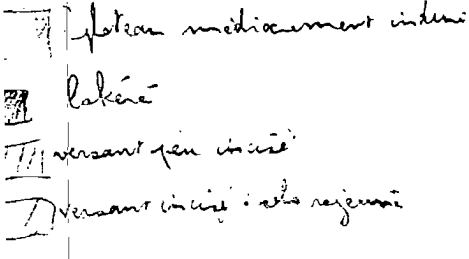 plateau médiocrement
lakéré
versant peu incisé
versant incisé rajeuni